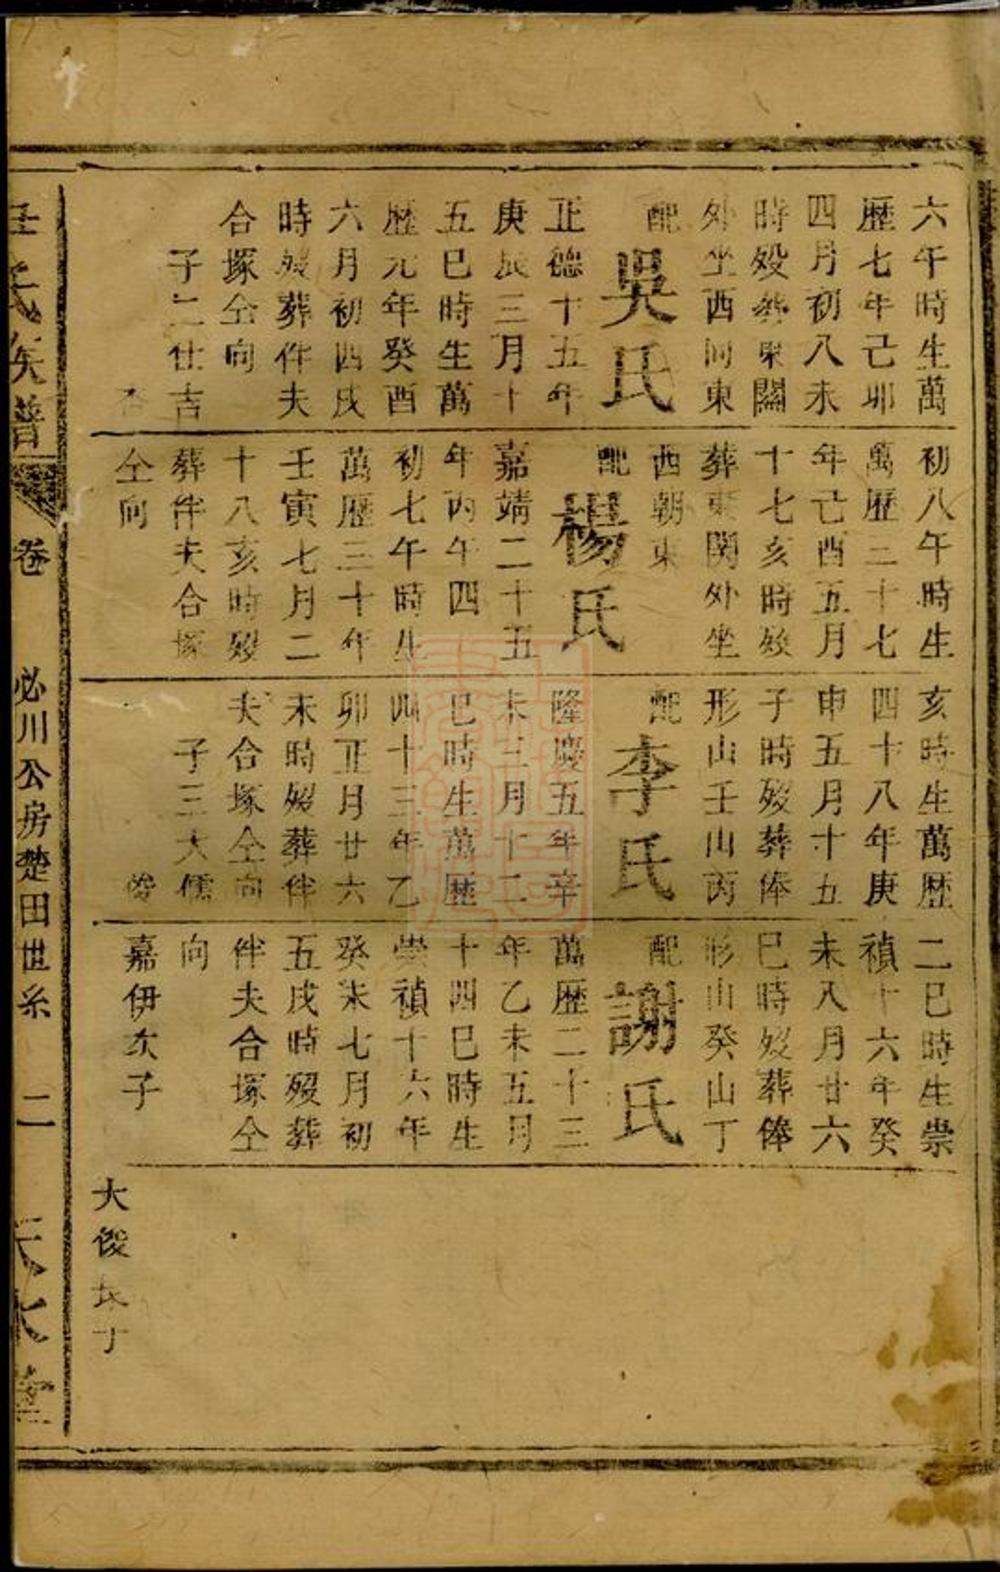 六午時生萬
歷七年己卯
四月初八未
時殁葬東關
外坐西向東
配
吳氏
正德十五年
庚辰三月十
五巳時生萬
歷元年癸酉
六月初四戌
時殁葬伴夫
合塚仝向
子二仕吉
初八午時生
萬歷三十七
年己酉五月
十七亥時殁
葬東関外坐
西朝東
配
楊氏
嘉靖二十五
年丙午四
初七午時生
萬歷三十年
壬寅七月二
十八亥時殁
葬伴夫合塚
仝向
亥時生萬歷
四十八年庚
申五月十五
子時殁葬俸
形山壬山丙
配
李氏
隆慶五年辛
未三月十二
巳時生萬歷
四十三年乙
卯正月廿六
未時殁葬伴
夫合塚仝向
子三大儒
二巳時生崇
禎十六年癸
未八月廿六
巳時殁葬俸
形山癸山丁
配
謝氏
萬歷二十三
年乙未五月
十四巳時生
崇禎十六年
癸未七月初
五戌時殁葬
伴夫合塚仝
向
嘉伊次子
大俊長丁
氏族譜
卷
必川公房楚田世系
二
天水堂